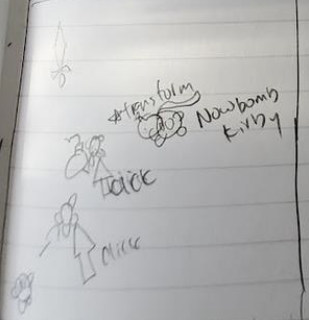 *transform
Nowbomb
Kirby
click
click